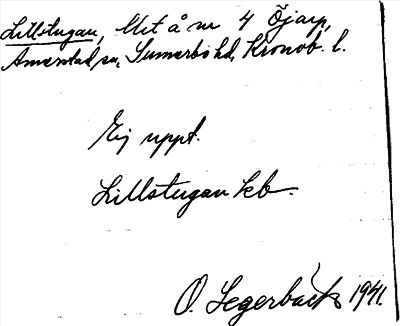 Lillstugan, Met å nr 4 Öjarp,
Annerstad sn, Sunnerbo hd, Kronob. l.
Ej uppt.
Lillstugan kb
O. Segerbäck 1941.